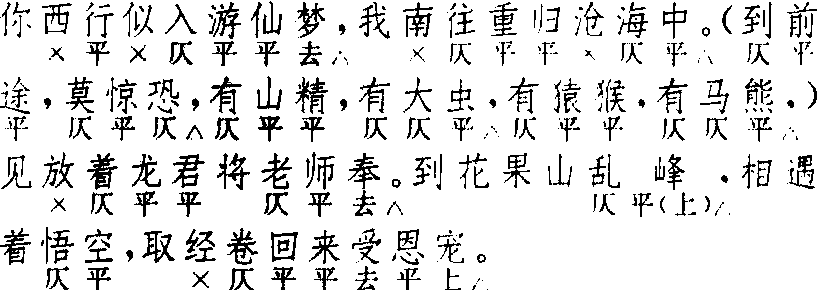 你西行似入游仙梦，我南往重归沧海中。（到前
× 平 × 仄 平 平 去△ × 仄 平 平 × 仄 平△ 仄 平
途，莫惊恐，有山精，有大虫，有猿猴，有马熊，）
平 仄 平 仄△ 仄 平 平 仄 仄 平△ 仄 平 平 仄 仄 平△
见放着龙君将老师奉。到花果山乱峰，相遇
× 仄 平 平 仄 平 去△ 仄 平（上）△
着悟空，取经卷回来受恩宠。
仄 平 × 仄 平 平 去 平 上△